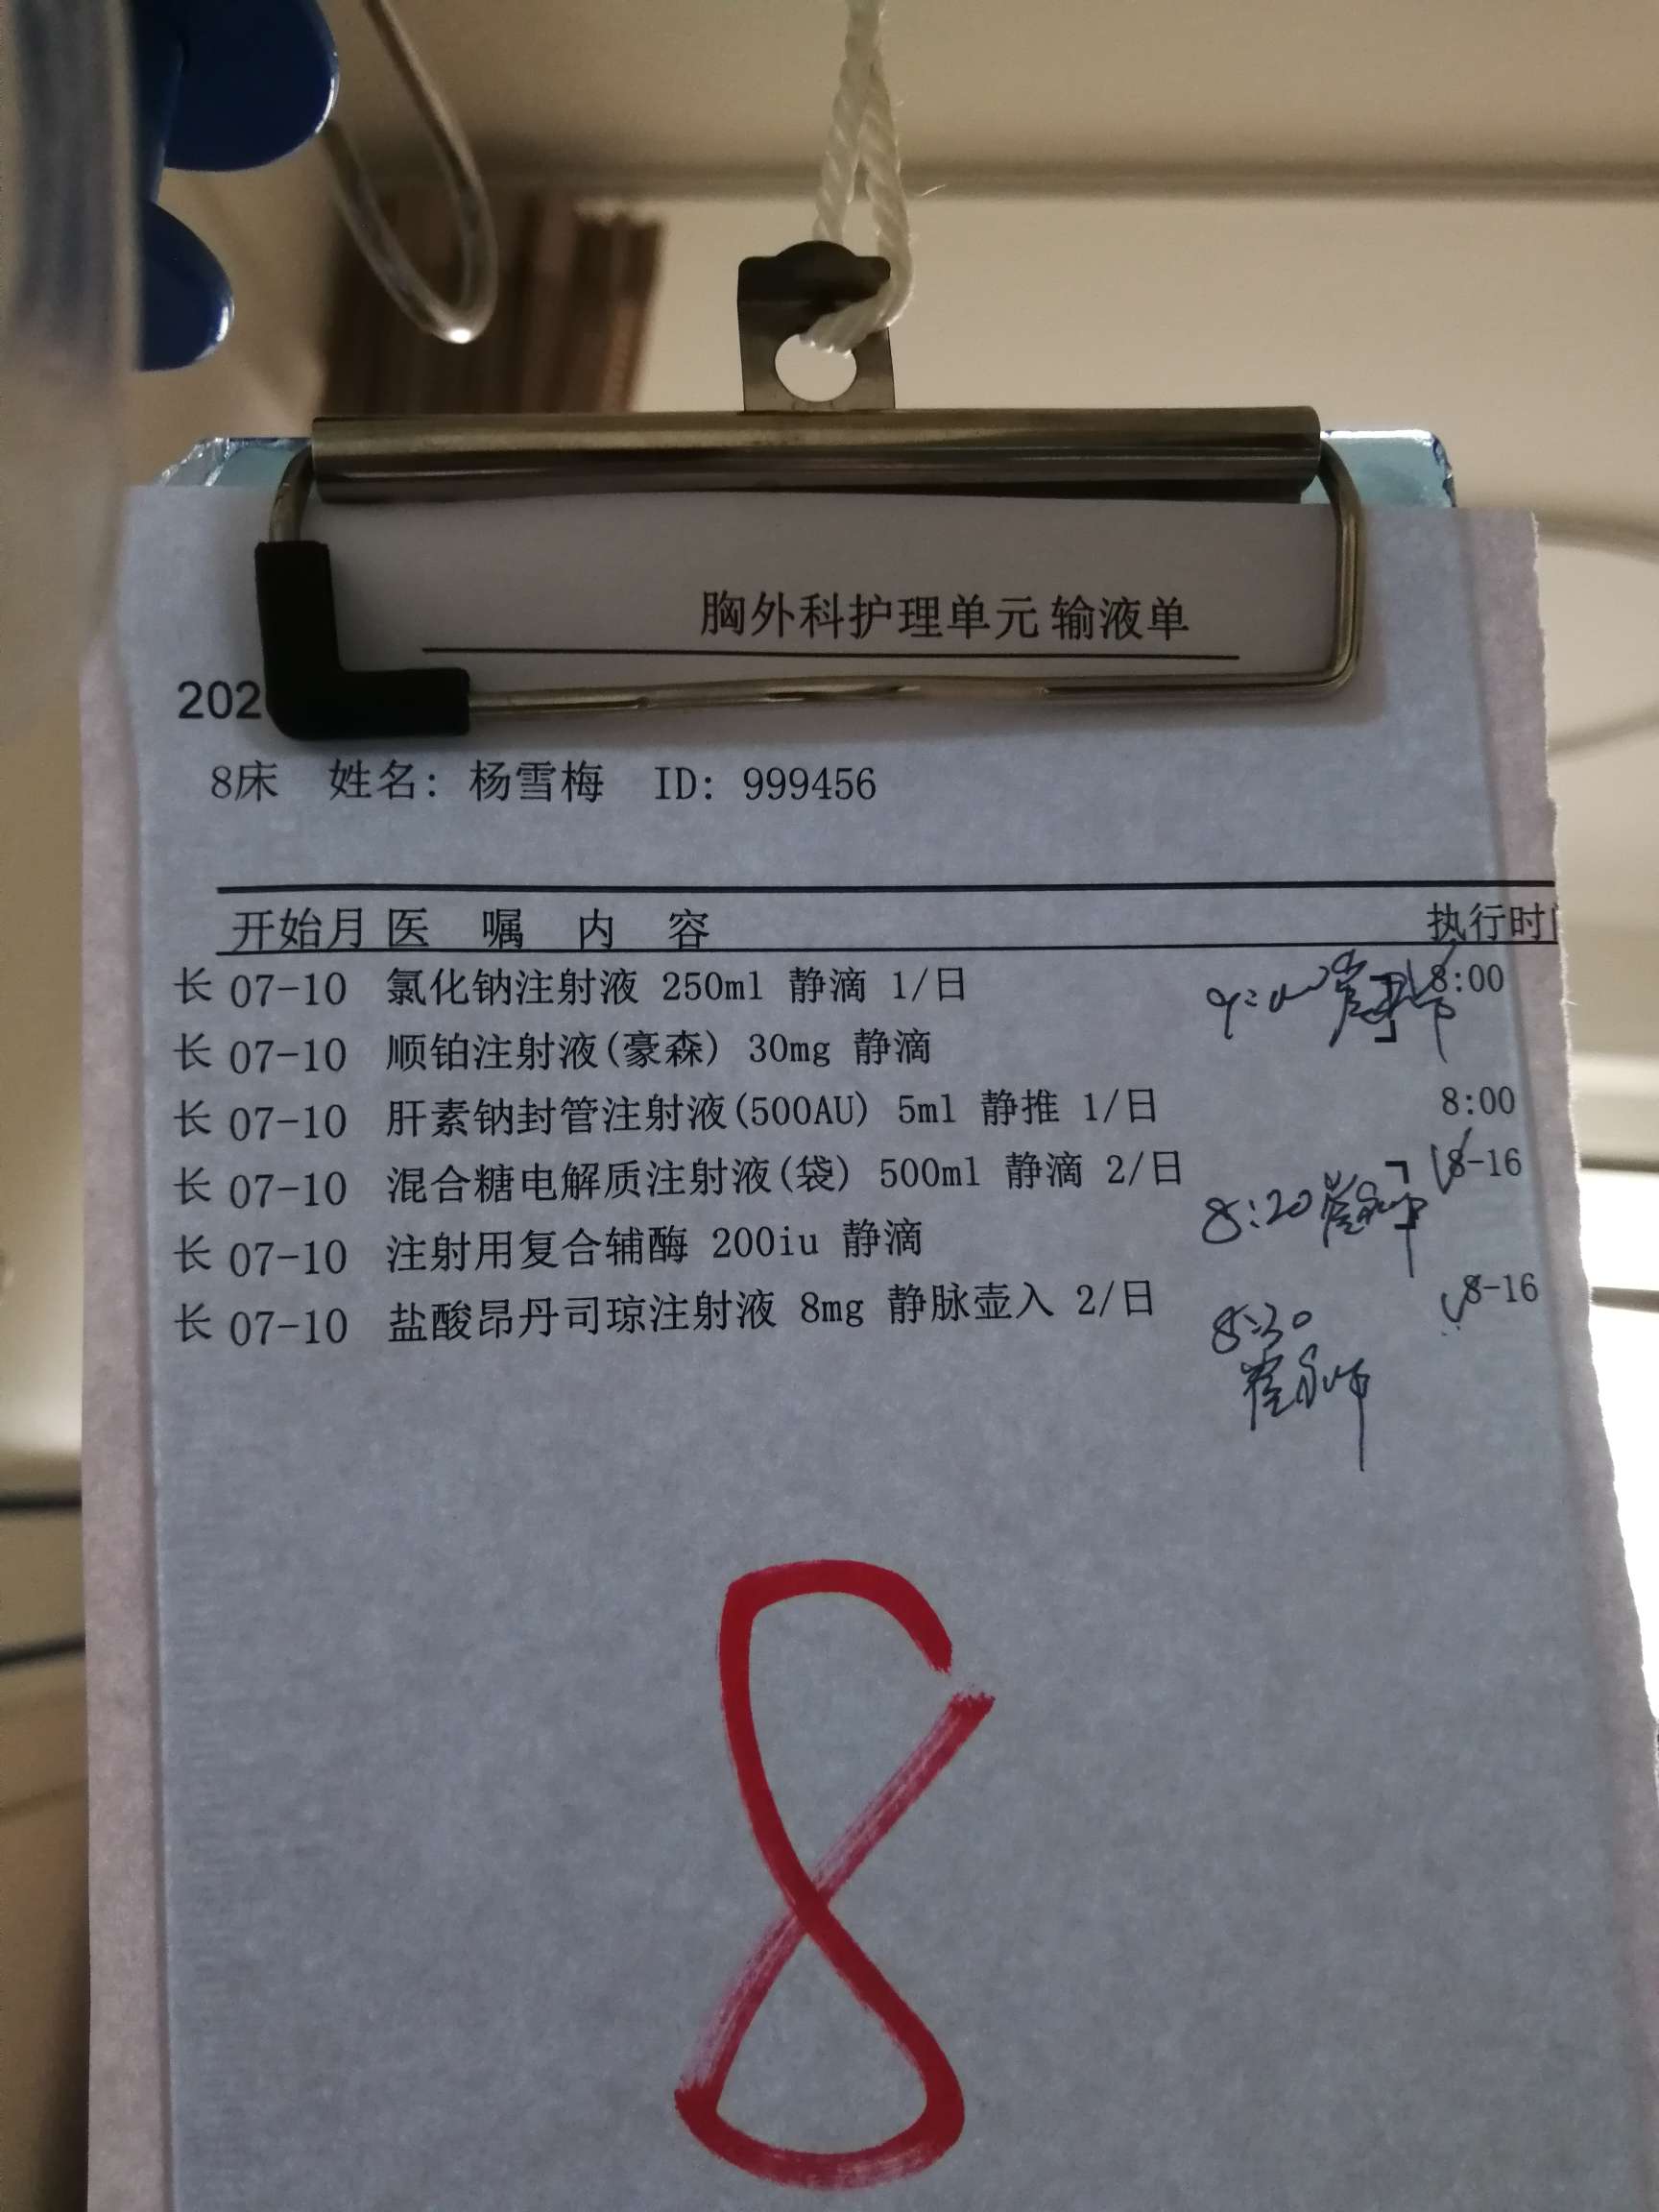 胸外科护理单元 输液单
202
8床 姓名: 杨雪梅 ID: 999456
开始月 医 嘱 内 容 执行时
长 07-10 氯化钠注射液 250ml 静滴 1/日 8:00
长 07-10 顺铂注射液(豪森) 30mg 静滴
长 07-10 肝素钠封管注射液(500AU) 5ml 静推 1/日 8:00
长 07-10 混合糖电解质注射液(袋) 500ml 静滴 2/日 8-16
8:20
长 07-10 注射用复合辅酶 200iu 静滴
长 07-10 盐酸昂丹司琼注射液 8mg 静脉壶入 2/日 8-16
8:30
8